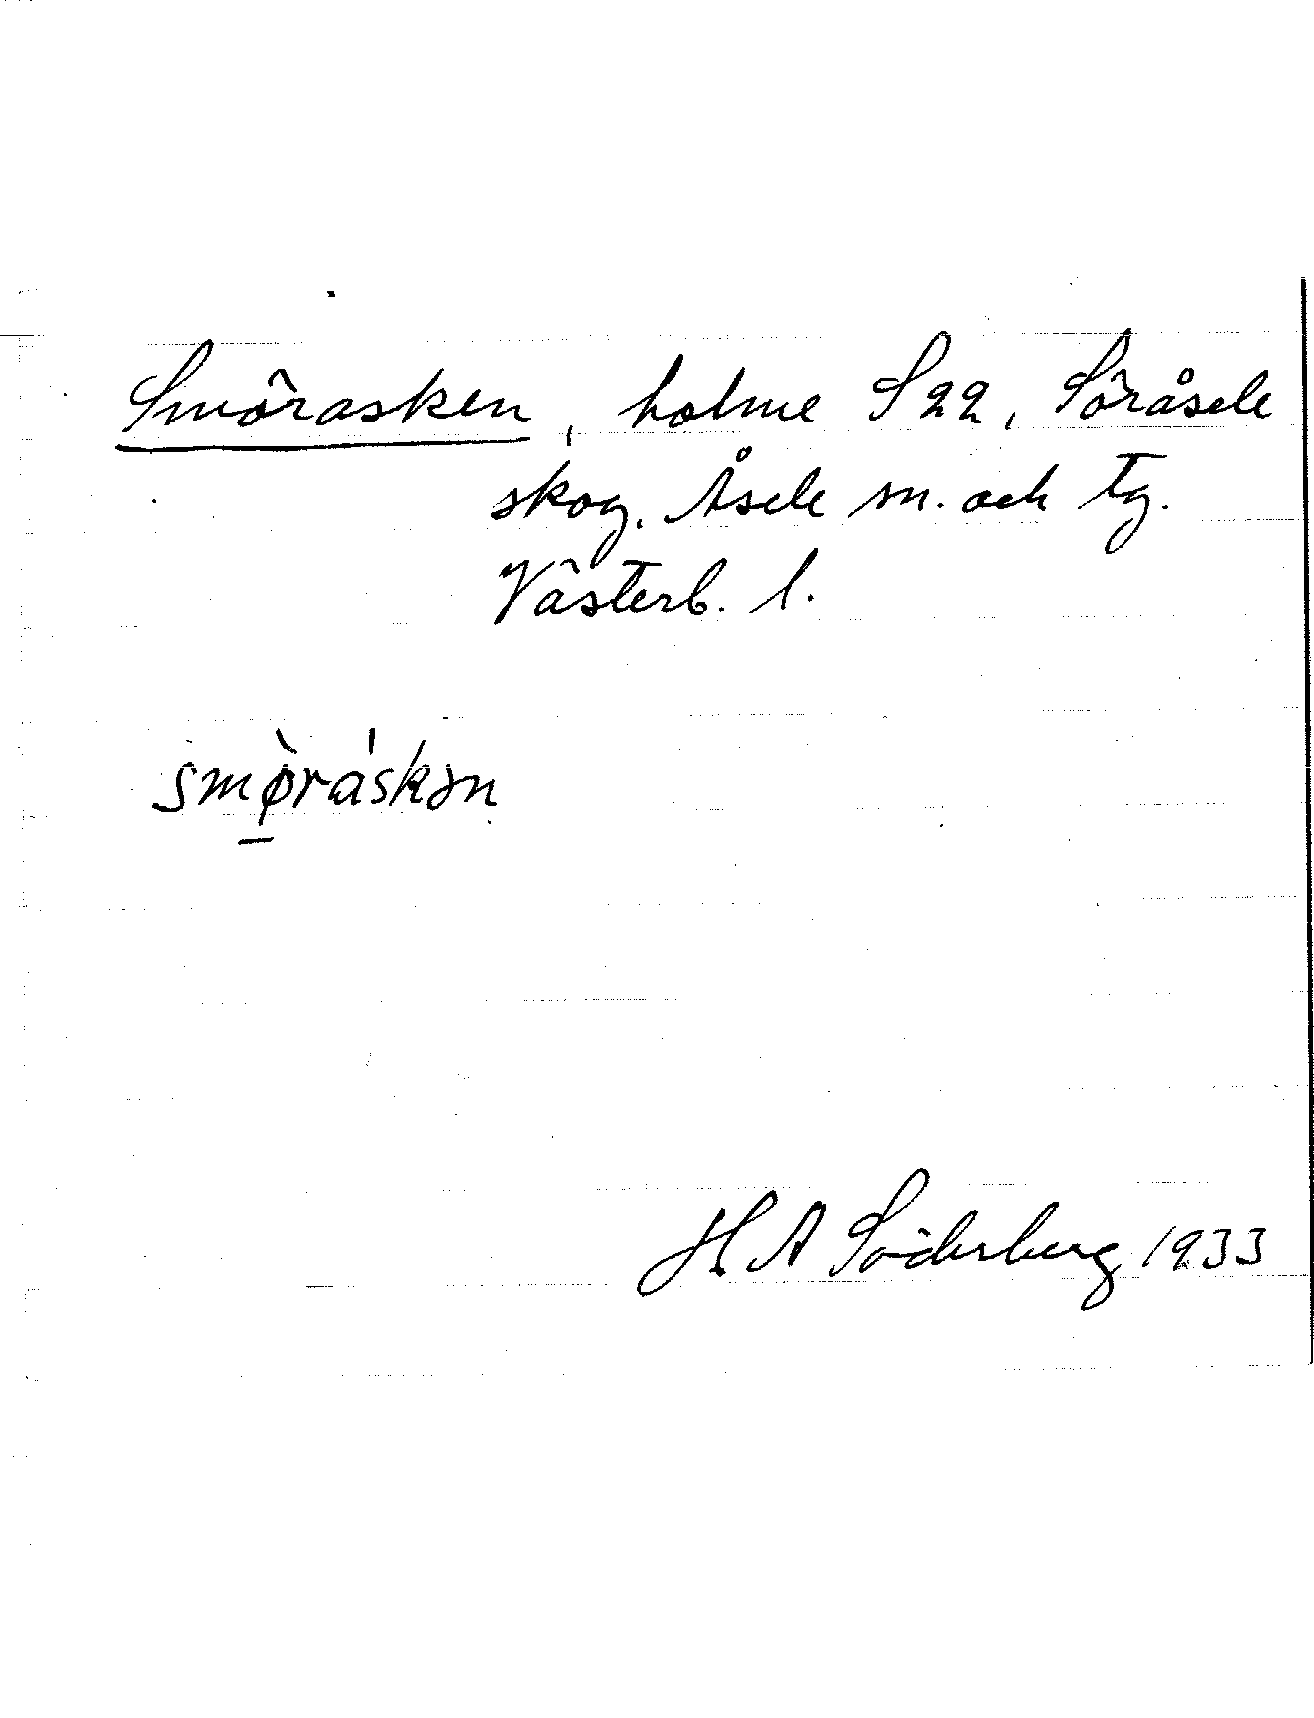 Smörasken, holme S 22, Söråsele
skog. Åsele sn. och tg.
Västerb. l.
smø̀ráskən
H A Söderberg 1933